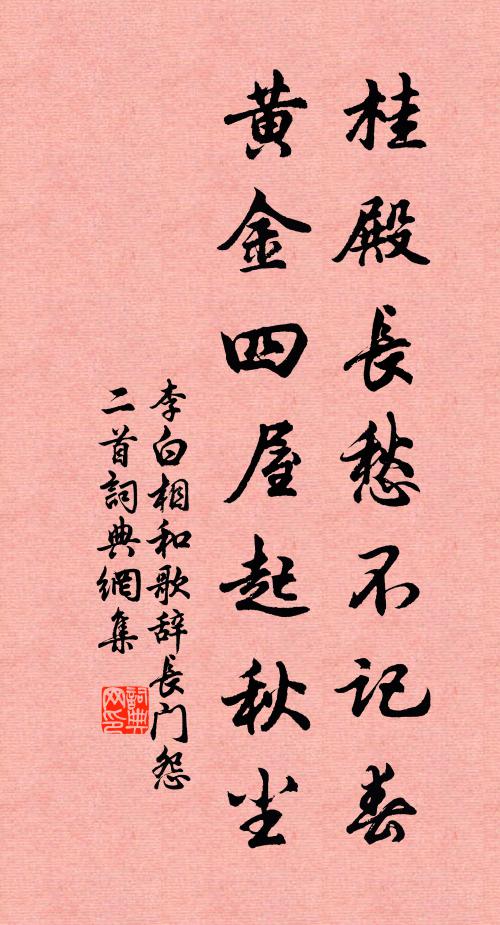 桂殿長愁不記春
黃金四屋起秋尘
李白相和歌辞長门怨
二首詞典網集
詞典网印